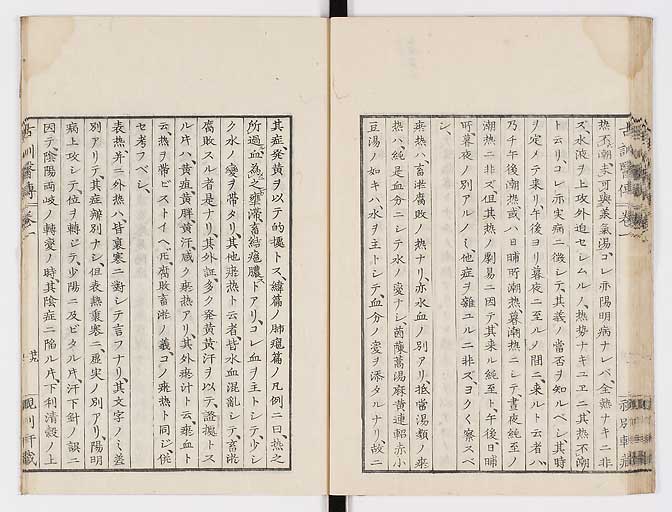 熱不潮未可與蒸氣湯コレ亦陽明病ナレバ全熱ナキニ非
ズ水液ヲ上攻外迫セシムルノ熱勢ナキユヱニ其熱不潮
ト云リコレ亦実病ニ徴シテ其義ノ當否ヲ知ルベシ其時
ヲ定メテ来リ午後ヨリ暮夜ニ至ルノ間ニ来ルト云者ハ
乃チ午後潮熱或ハ日晡所潮熱暮潮熱ニシテ昼夜純至ノ
潮熱ニ非ズ但其熱ノ劇易ニ因テ其来ル純至ト午後日晡
所暮夜ノ別アルノミ他症ヲ雜ユルニ非ズヨク〱察スベ
シ
瘀熱ハ畜淤腐敗ノ熱ナリ亦水血ノ別アリ抵當湯類ノ瘀
熱ハ純是血分ニシテ水ノ変ナシ茵蔯蒿湯麻黄連軺赤小
豆湯ノ如キハ水ヲ主トシテ血分ノ変ヲ添タルナリ故ニ
其症発黄ヲ以テ的據トス緯篇ノ肺癰篇ノ凡例ニ曰熱之
所過血為之壅滞畜結癰膿トアリコレ血ヲ主トシテ少シ
ク水ノ変ヲ帯タリ其他瘀熱ト云者皆水血混亂シテ畜淤
腐敗スル者是ナリ其外証多ク発黄黄汗ヲ以テ證據トス
ル片ハ黄疸黄胖黄汗咸ク瘀熱アリ其外瘀汁ト云瘀血ト
云熱ヲ帯ビストイヘ𪜈腐敗畜淤ノ義コノ瘀熱ト同ジ併
セ考フベシ
表熱并ニ外熱ハ皆裏寒ニ對シテ言フナリ其文字ノミ差
別アリテ其症辨別ナシ但表熱裏寒ニ虚実ノ別アリ陽明
病上攻シテ位ヲ轉ジテ少陽ニ及ビタル片汗下針ノ誤ニ
因テ陰陽両岐ノ轉変ノ時其陰症ニ陥ル片下利清穀ノ上